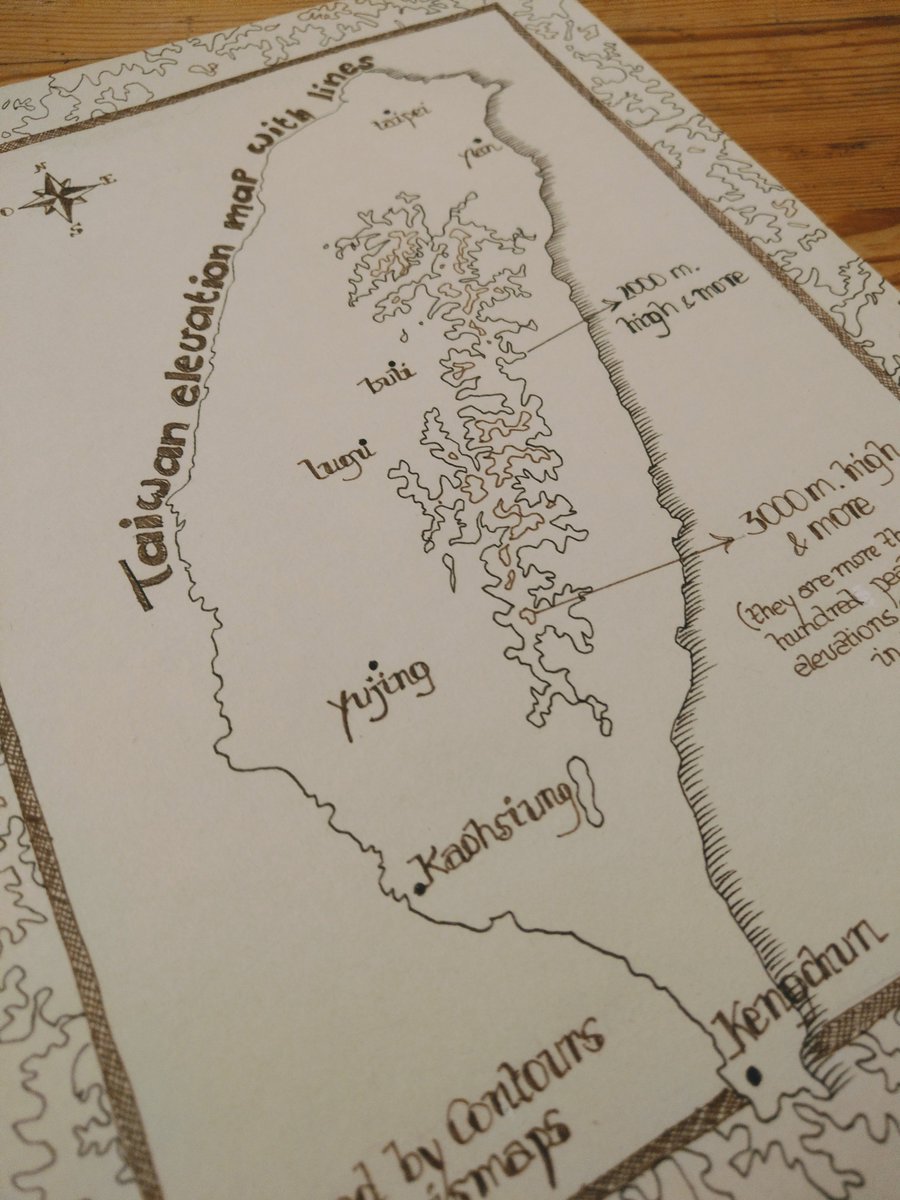 Taiwan elevation map with lines
N
E
S
O
taipei
2000 m.
high & more
buli
lugu
3000 m. high
& more
(they are more
hundred
elevations
in
yujing
Kaohsiung
Kengchun
by Contours